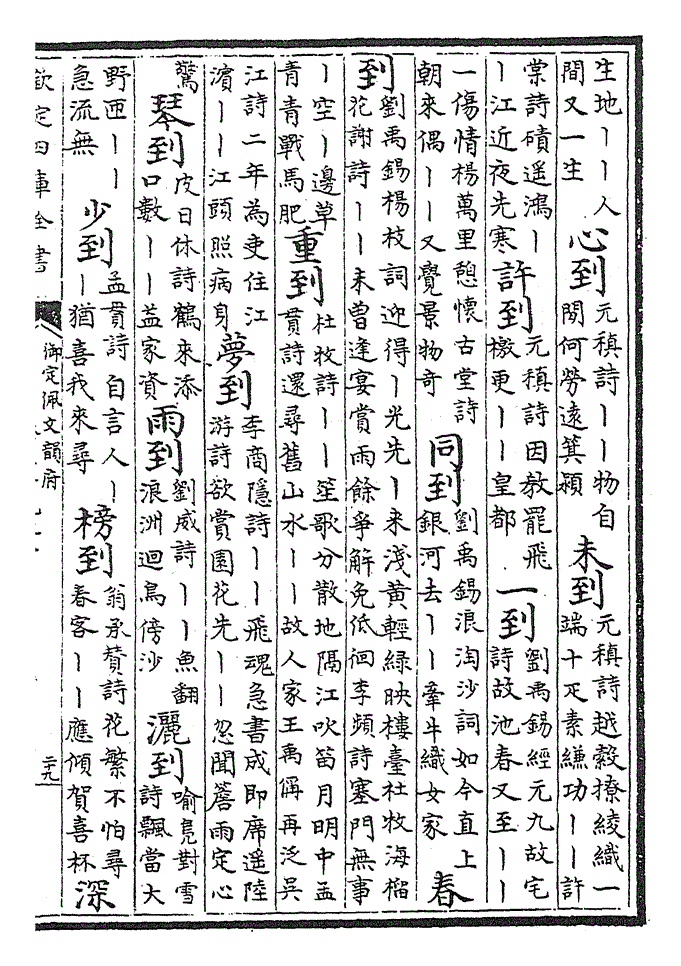 生地丨丨人
間又一生
心到
元稹詩丨丨物自
閑何勞遠箕潁
未到
元稹詩越縠撩綾織一
端十疋素縑功丨丨許
棠詩磧遥鴻丨
丨江近夜先寒
許到
元稹詩因教罷飛
檄更丨丨皇都
一到
劉禹錫經元九故宅
詩故池春又至丨丨
一傷情楊萬里憩懷古堂詩
朝来偶丨丨又覺景物奇
同到
劉禹錫浪淘沙詞如今直上
銀河去丨丨牽牛織女家
春
到
劉禹錫楊枝詞迎得丨光先丨来淺黄輕緑映樓臺杜牧海榴
花謝詩丨丨未曽逢宴賞雨餘爭解免低徊李頻詩塞門無事
丨空丨邊草
青青戰馬肥
重到
杜牧詩丨丨笙歌分散地隔江吹笛月明中孟
貫詩還尋舊山水丨丨故人家王禹偁再泛吳
江詩二年為吏住江
濵丨丨江頭照病身
夢到
李商隱詩丨丨飛魂急書成即席遥陸
游詩欲賞園花先丨丨忽聞簷雨定心
驚
琴到
皮日休詩鶴来添
口數丨丨益家資
雨到
劉威詩丨丨魚翻
浪洲迴鳥傍沙
灑到
喻鳬對雪
詩飄當大
野匝丨丨
急流無
少到
孟貫詩自言人丨
丨猶喜我来尋
榜到
翁承贊詩花繁不怕尋
春客丨丨應傾賀喜杯
深
欽定四庫全書
御定佩文韻府
二十九